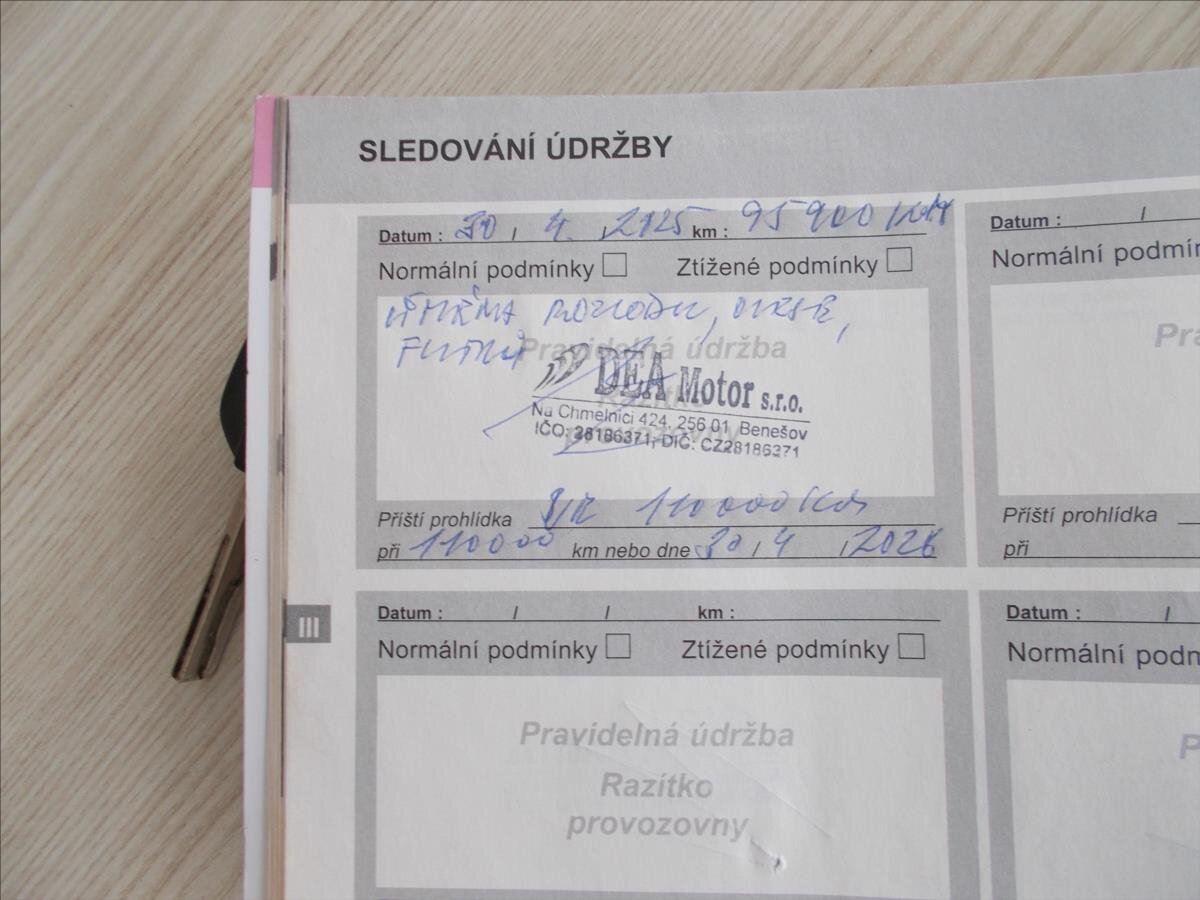 SLEDOVÁNÍ ÚDRŽBY
Datum : 30 / 4 / 2025 km : 95 900 km
Normální podmínky Ztížené podmínky
VÝMĚNA ROZVODU, OLEJE,
FILTRŮ
Pravidelná údržba
Razítko
provozovny
DEA Motor s.r.o.
Na Chmelnici 424, 256 01 Benešov
IČO: 28186371, DIČ: CZ28186371
Příští prohlídka 110 000 Km
při 110000 km nebo dne 30 / 4 / 2026
Datum : /
Normální podmín
Pr
Příští prohlídka
při
III
Datum : / / km :
Normální podmínky Ztížené podmínky
Pravidelná údržba
Razítko
provozovny
Datum : /
Normální podm
P